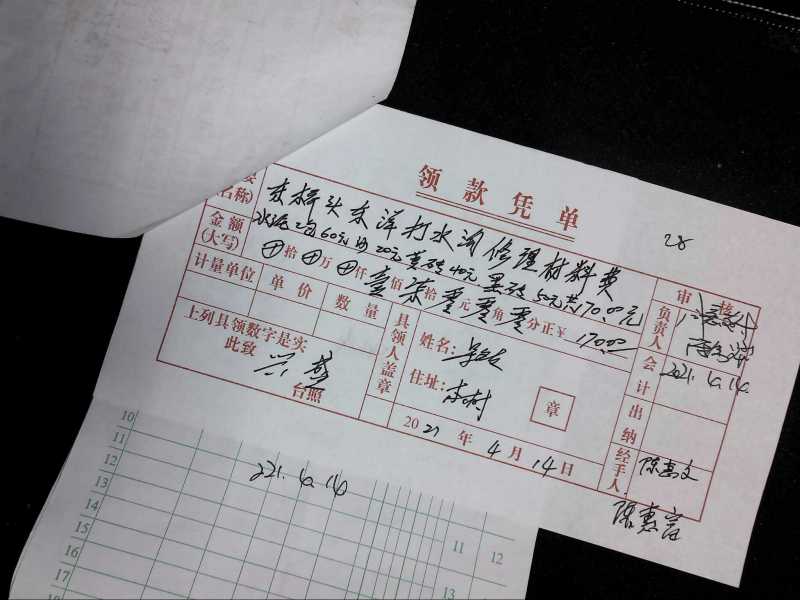 领款凭单
28
名称)
东桥头东洋打水沟修理材料费
水泥2包60元 沙20元 黄砖40元 黑砖50元共170.00元
金额(大写)
拾 万 仟 壹佰柒拾零元零角零分正¥170.00
计量单位 单价 数量
上列具领数字是实
此致
台照
具领人盖章
姓名:
住址: 本村
章
2021年4月14日
审核
负责人
2021.4.14.
会计
出纳
经手人
10
11
12
13
14
15
16
17
221.4.14
11 12
13